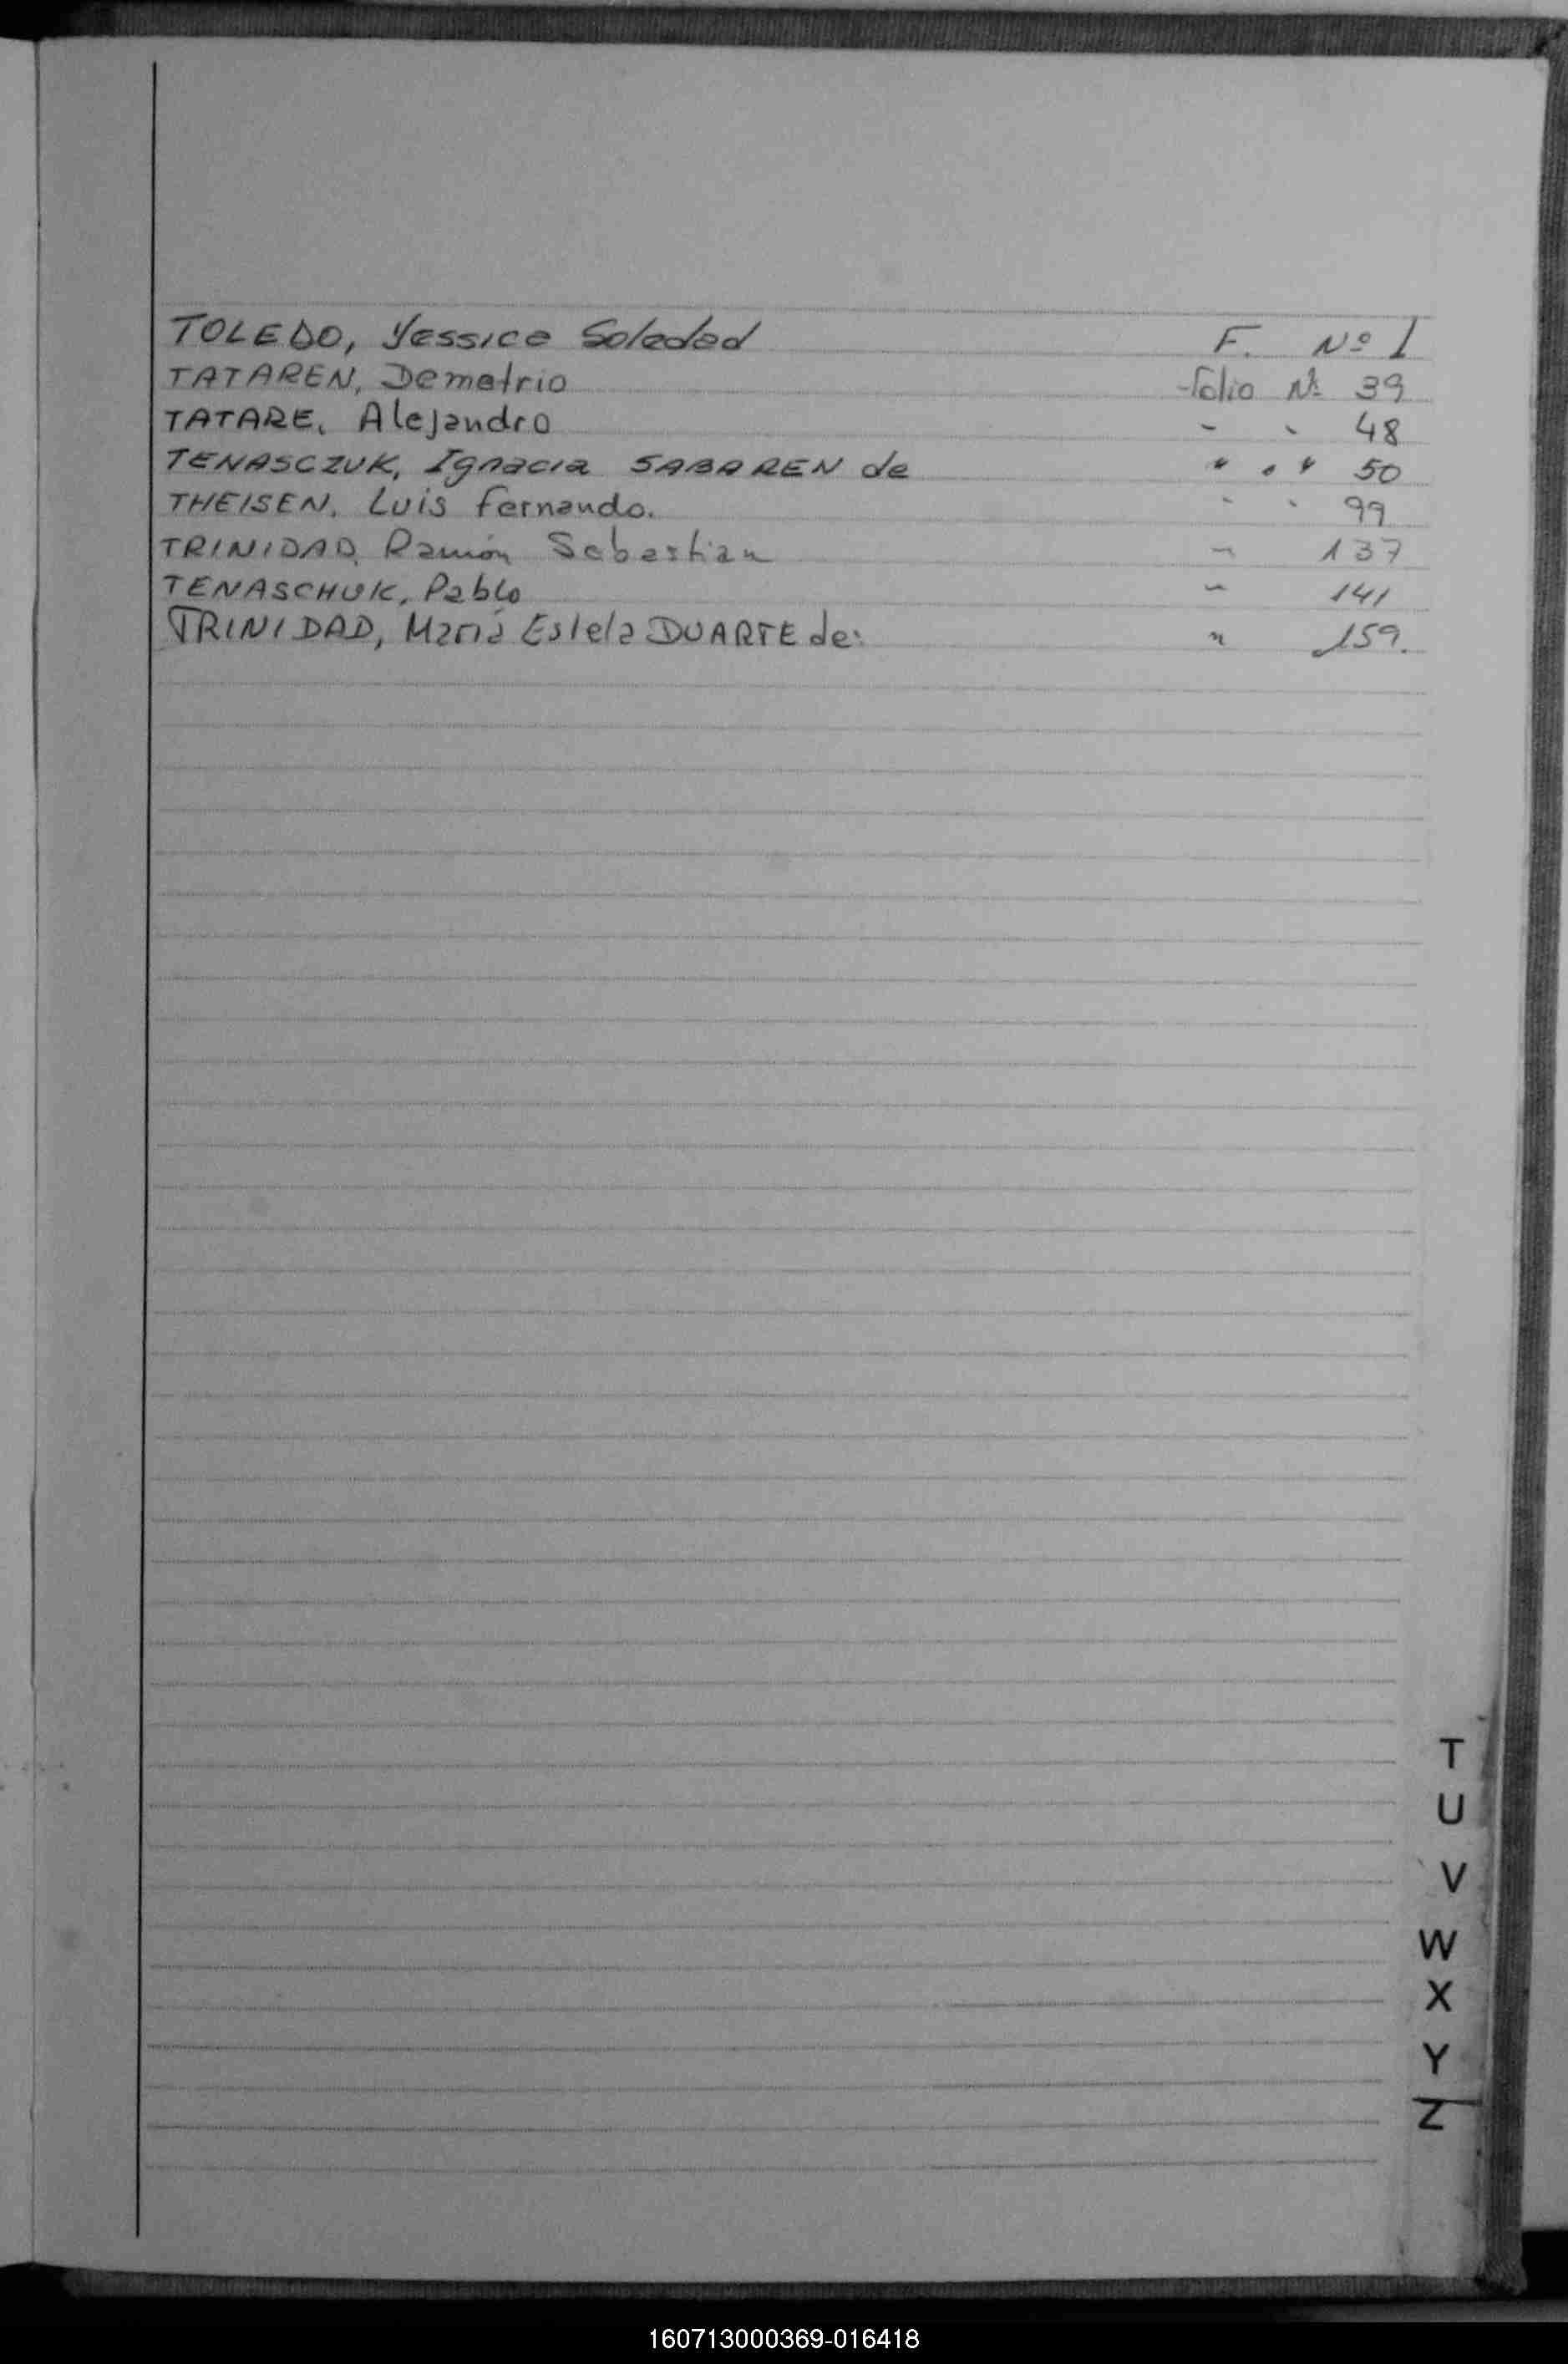 TOLEDO, Yessica Soledad F. Nº 1
TATAREN, Demetrio Folio Nº 39
TATARE, Alejandro - - 48
TENASCZUK, Ignacia SABAREN de " " " 50
THEISEN, Luis Fernando. - - 99
TRINIDAD, Ramón Sebastian - 137
TENASCHUK, Pablo - 141
TRINIDAD, María Estela DUARTE de: " 159.
T
U
V
W
X
Y
Z
160713000369-016418